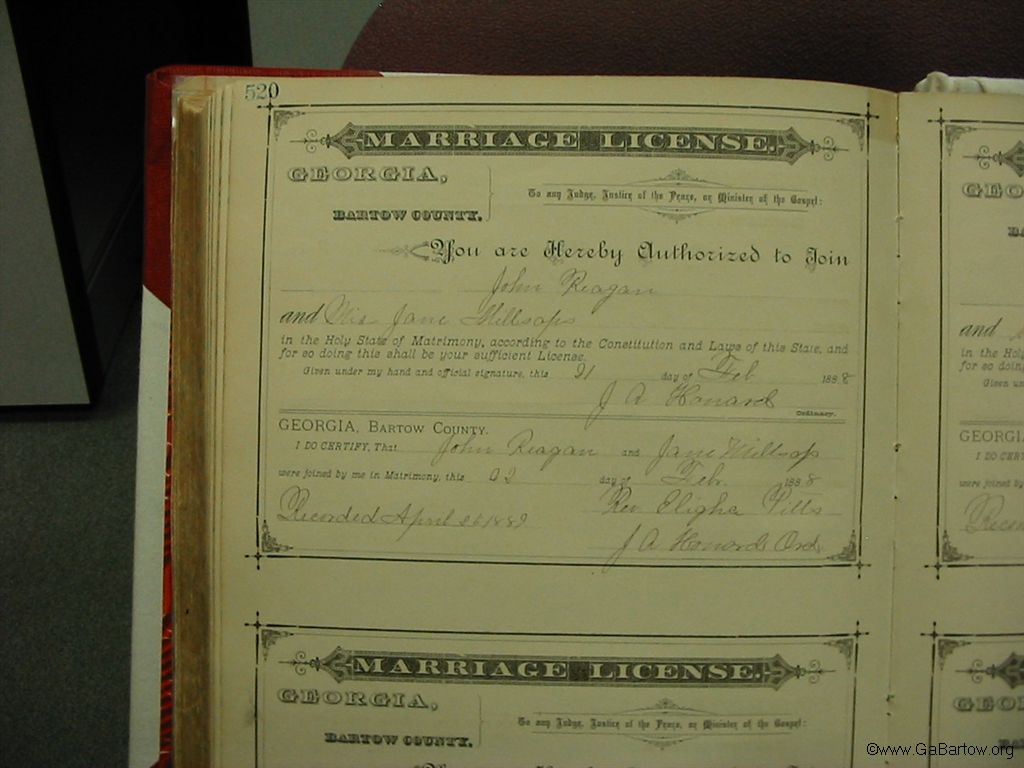 520
MARRIAGE LICENSE.
GEORGIA,
BARTOW COUNTY.
To any Judge, Justice of the Peace, or Minister of the Gospel:
You are Hereby Authorized to Join
John Reagan
and Mis Jane Millsaps
in the Holy State of Matrimony, according to the Constitution and Laws of this State, and
for so doing this shall be your sufficient License.
Given under my hand and official signature, this 21 day of Feb 1888
J A Howard
Ordinary.
GEORGIA, BARTOW COUNTY.
I DO CERTIFY, That John Reagan and Jane Millsap
were joined by me in Matrimony, this 22 day of Feb. 1888
Rev Eligha Pitts
Recorded April 1889
J A Howard Ord
MARRIAGE LICENSE.
GEORGIA,
BARTOW COUNTY.
To any Judge, Justice of the Peace, or Minister of the Gospel:
GEO
and
in the Holy
for so doing
Given un
GEORGIA
I DO CERT
were joined by
GEO
©www.GaBartow.org